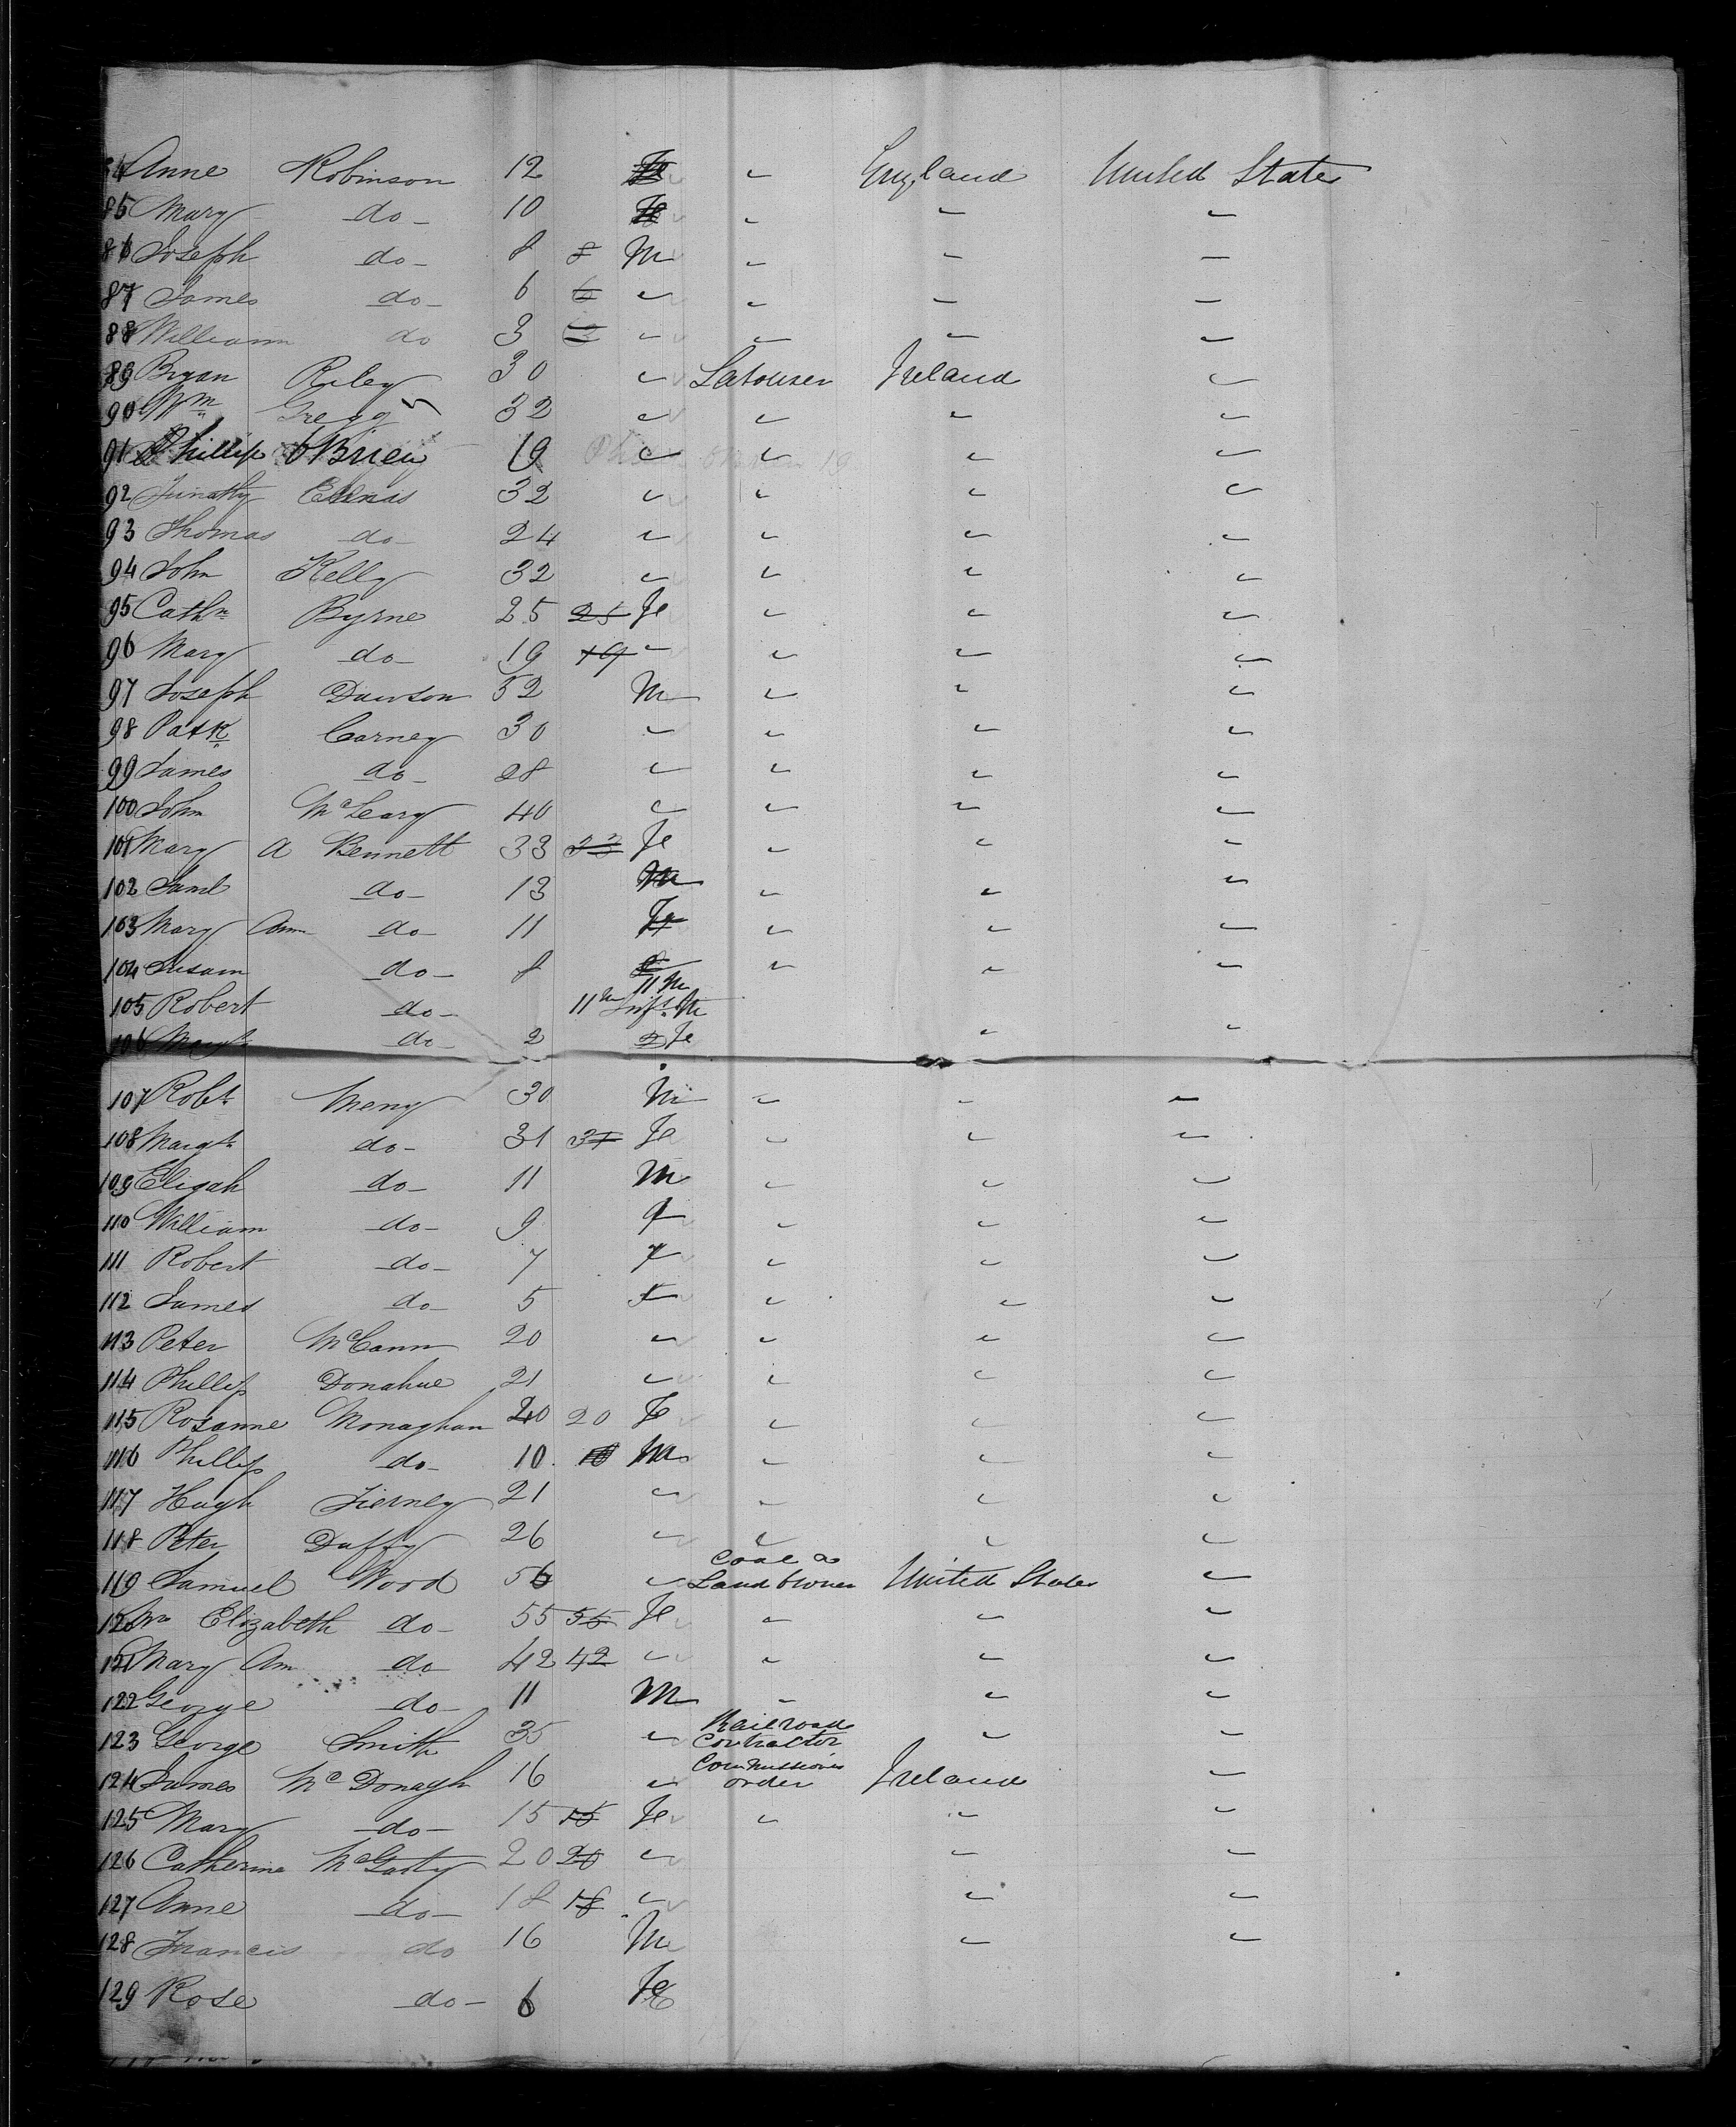 84 Anne Robinson 12 Fe " England United States
85 Mary do 10 Fe " " "
86 Joseph do 8 8 M " " "
87 James do 6 6 " " " "
88 William do 3 " " " "
89 Bryan Riley 30 " Labourer Ireland "
90 Wm Gregg 32 " " " "
91 Phillip O'Brien 19 " " " "
92 32 " " " "
93 Thomas do 24 " " " "
94 John Kelly 32 " " " "
95 Cathn Byrne 25 25 Fe " " "
96 Mary do 19 19 " " " "
97 Joseph Dawson 52 M " " "
98 Patk Carney 30 " " " "
99 James do 28 " " " "
100 John McLeary 40 " " " "
101 Mary A Bennett 33 33 Fe " " "
102 Saml do 13 M " " "
103 Mary Ann do 11 Fe " " "
104 Susan do 8 " " "
11 M
105 Robert do 11 M Inft M
106 Margt do 2 2 Fe " "
107 Robt Meny 30 M " " "
108 Margt do 31 31 Fe " " "
109 Eligah do 11 M " " "
110 William do 9 9 " " "
111 Robert do 7 7 " " "
112 James do 5 5 " " "
113 Peter McCann 20 " " " "
114 Phillip Donahue 21 " " " "
115 Rosanne Monaghan 20 20 Fe " " "
116 Phillip do 10 10 M " " "
117 Hugh Tierney 21 " " " "
118 Peter Duffy 26 " " " "
119 Samuel Wood 56 " Coal & Land Owner United States "
120 Mrs Elizabeth do 55 55 Fe " " "
121 Mary Ann do 42 42 " " " "
122 George do 11 M " " "
123 George Smith 35 " Railroad Contractor " "
124 James McDonagh 16 " Commissions order Ireland "
125 Mary do 15 15 Fe " " "
126 Catherine McGarty 20 20 " " "
127 Anne do 18 18 " " "
128 Francis do 16 M " "
129 Rose do 6 Fe